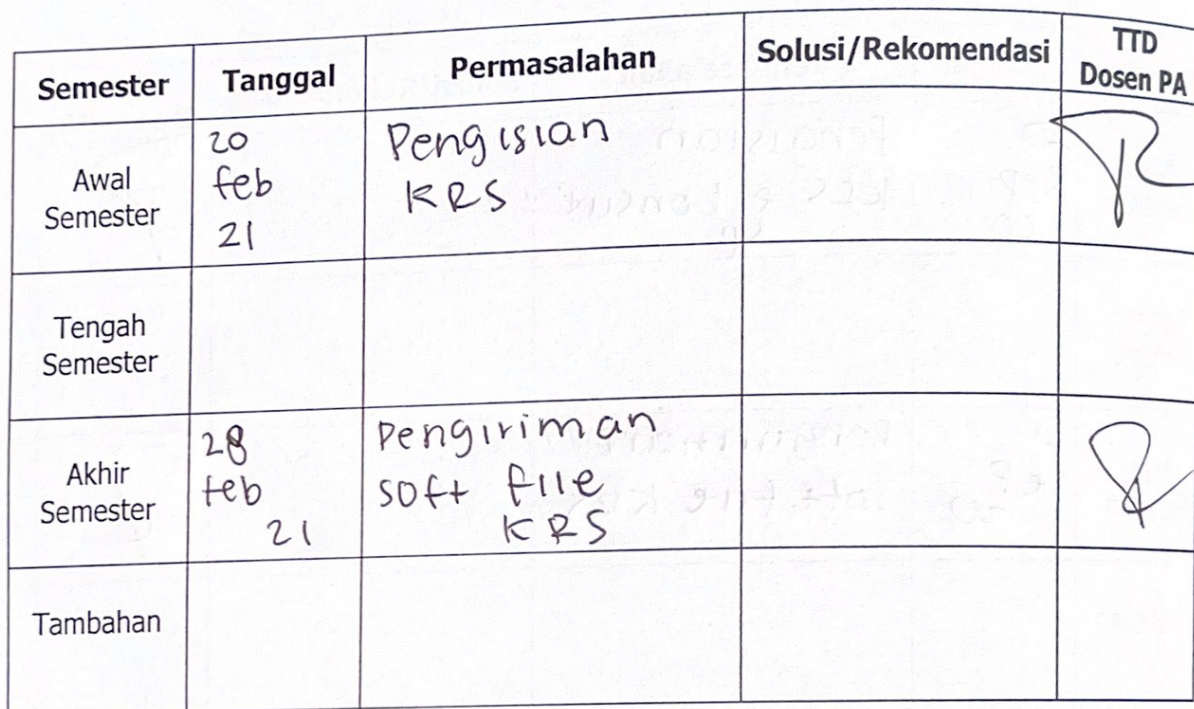 Semester Tanggal Permasalahan Solusi/Rekomendasi TTD
Dosen PA
Awal
Semester
20
feb
21
Pengisian
KRS
Tengah
Semester
Akhir
Semester
28
feb
21
Pengiriman
soft file
KRS
Tambahan